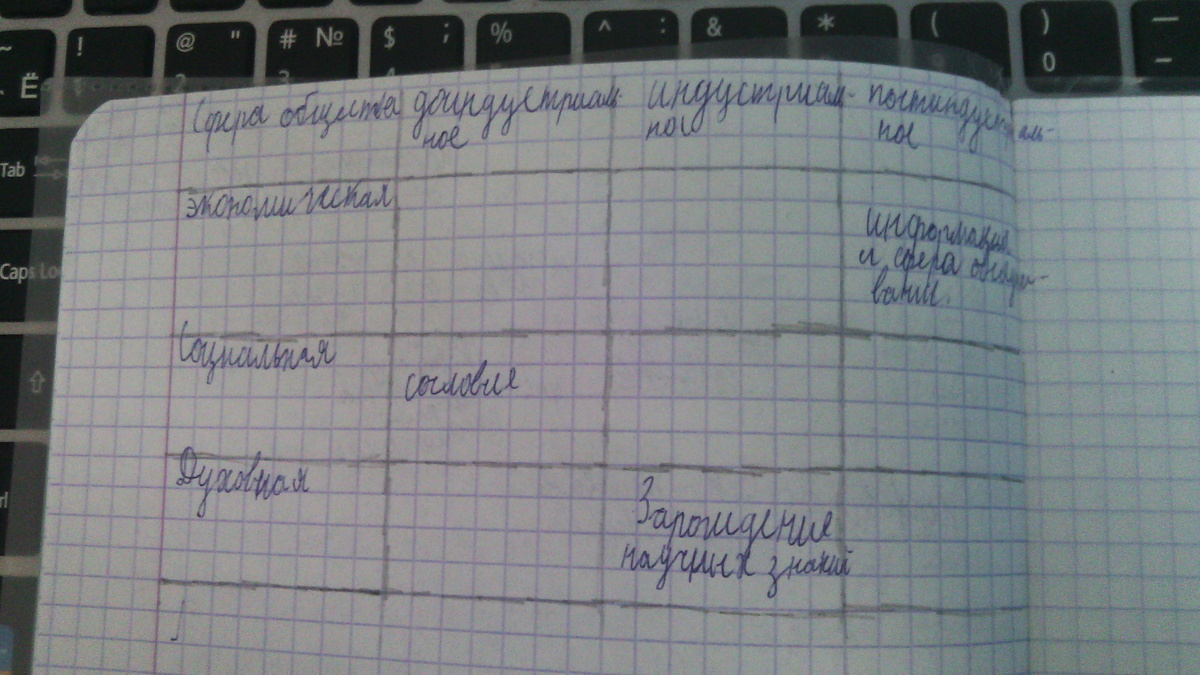 ~ ! @ " # № $ ; % ^ : & * ( ) —
Ё 0 –
Tab
Caps Lo
Сфера общества доиндустриаль- индустриаль- постиндустриаль-
ное ное ное
экономическая
информация
и сфера обслужи-
вания.
Социальная
сословия
Духовная
Зарождение
научных знаний